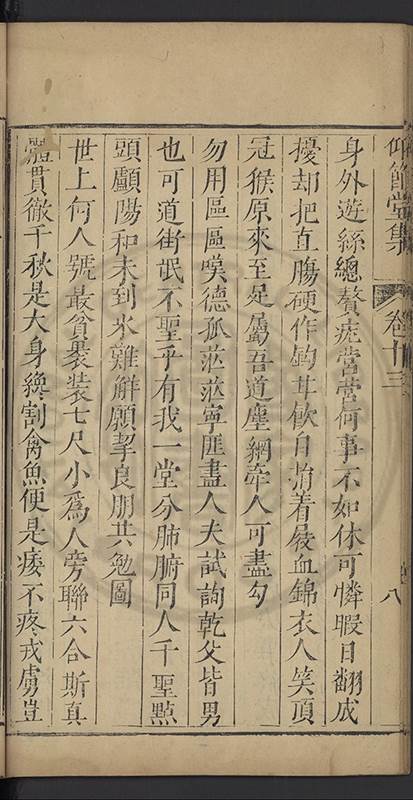 仰節堂集 卷十三 八
身外遊絲總贅疣營營何事不如休可憐暇日翻成
擾却把直腸硬作鈎甘飲自指着屐血錦衣人笑頂
冠猴原來至足屬吾道塵網牽人可盡勾
勿用區區嘆德孤茫茫寧匪盡人夫試詢乾父皆男
也可道街氓不聖乎有我一堂分肺腑同人千聖點
頭顱陽和未到氷難解願挈良朋共勉圖
世上何人號最貧裝七尺小為人旁聯六合斯真
體貫徹千秋是大身纔割禽魚便是痿不疼戎虜豈